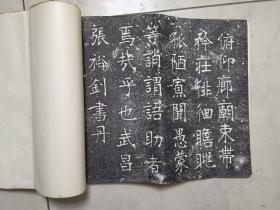 俯仰廊廟束帶
矜莊徘徊瞻眺
孤陋寡聞愚蒙
等誚謂語助者
焉哉乎也武昌
張裕釗書丹